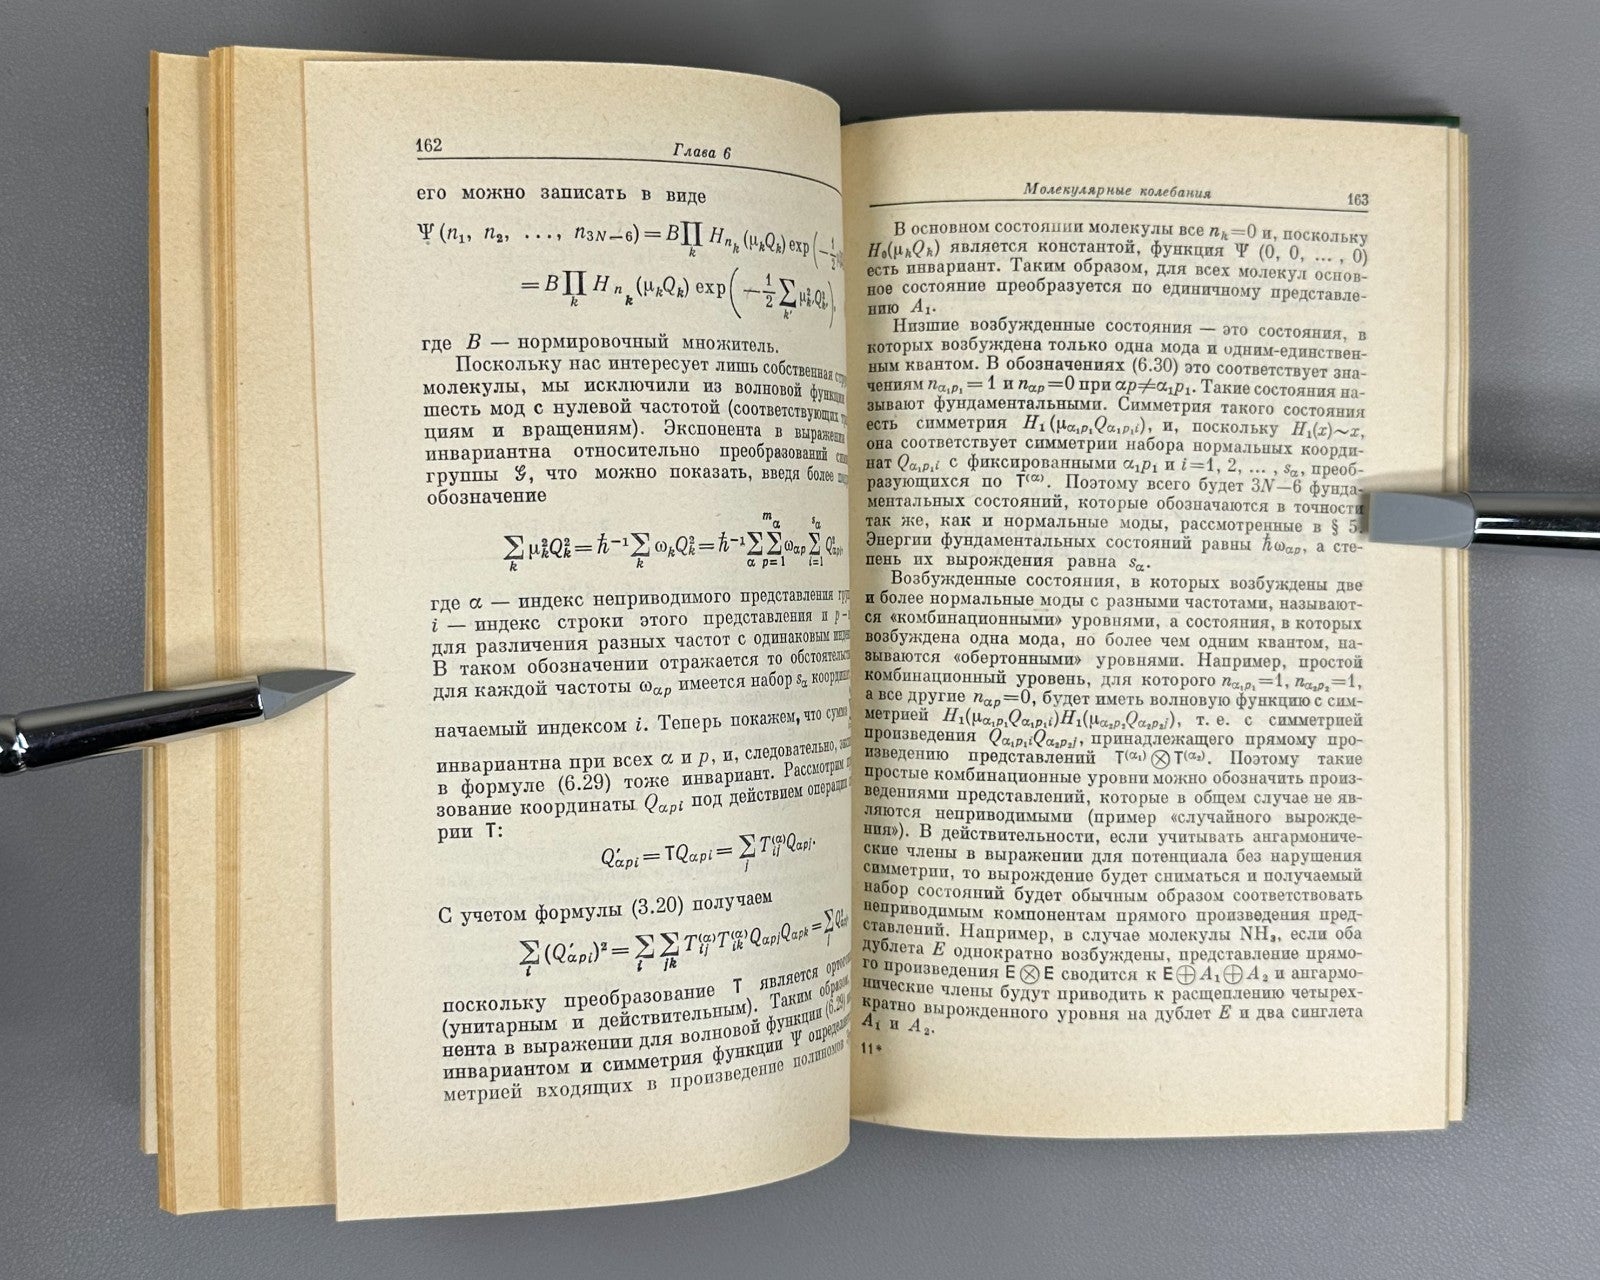 162
Глава 6
его можно записать в виде
Ψ (n₁, n₂, ..., n₃N₋₆) = B∏ₖ Hₙₖ (μₖQₖ) exp (−½
= B∏ₖ Hₙₖ (μₖQₖ) exp (−½ ∑ₖ' μ²ₖ'Q²ₖ'),
где B — нормировочный множитель.
Поскольку нас интересует лишь собственная
молекулы, мы исключили из волновой функции
шесть мод с нулевой частотой (соответствующих
циям и вращениям). Экспонента в выражении
инвариантна относительно преобразований
группы 𝒢, что можно показать, введя более
обозначение
∑ₖ μ²ₖQ²ₖ = ℏ⁻¹∑ₖ ωₖQ²ₖ = ℏ⁻¹ ∑_α ∑_{p=1}^{m_α} ω_{αp} ∑_{i=1}^{s_α} Q²_{αpi},
где α — индекс неприводимого представления
i — индекс строки этого представления и p —
для различения разных частот с одинаковым
В таком обозначении отражается то обстоятельство
для каждой частоты ω_{αp} имеется набор s_α
начаемый индексом i. Теперь покажем, что
инвариантна при всех α и p, и, следовательно,
в формуле (6.29) тоже инвариант. Рассмотрим
зование координаты Q_{αpi} под действием операции
рии T:
Q'_{αpi} = TQ_{αpi} = ∑_j T_{ij}^{(α)}Q_{αpj}.
С учетом формулы (3.20) получаем
∑_i (Q'_{αpi})² = ∑_i ∑_{jk} T_{ij}^{(α)}T_{ik}^{(α)}Q_{αpj}Q_{αpk} = ∑_j
поскольку преобразование T является
(унитарным и действительным). Таким образом,
нента в выражении для волновой функции (6.29)
инвариантом и симметрия функции Ψ
метрией входящих в произведение полиномов
Молекулярные колебания
163
В основном состоянии молекулы все nₖ=0 и, поскольку
H₀(μₖQₖ) является константой, функция Ψ (0, 0, ... , 0)
есть инвариант. Таким образом, для всех молекул основ-
ное состояние преобразуется по единичному представле-
нию A₁.
Низшие возбужденные состояния — это состояния, в
которых возбуждена только одна мода и одним-единствен-
ным квантом. В обозначениях (6.30) это соответствует зна-
чениям n_{α₁p₁} = 1 и n_{αp}=0 при αp≠α₁p₁. Такие состояния на-
зывают фундаментальными. Симметрия такого состояния
есть симметрия H₁(μ_{α₁p₁}Q_{α₁p₁i}), и, поскольку H₁(x)∼x,
она соответствует симметрии набора нормальных коорди-
нат Q_{α₁p₁i} с фиксированными α₁p₁ и i=1, 2, ... , s_α, преоб-
разующихся по T^{(α)}. Поэтому всего будет 3N—6 фунда-
ментальных состояний, которые обозначаются в точности
так же, как и нормальные моды, рассмотренные в § 5.
Энергии фундаментальных состояний равны ℏω_{αp}, а сте-
пень их вырождения равна s_α.
Возбужденные состояния, в которых возбуждены две
и более нормальные моды с разными частотами, называют-
ся «комбинационными» уровнями, а состояния, в которых
возбуждена одна мода, но более чем одним квантом, на-
зываются «обертонными» уровнями. Например, простой
комбинационный уровень, для которого n_{α₁p₁}=1, n_{α₂p₂}=1,
а все другие n_{αp}=0, будет иметь волновую функцию с сим-
метрией H₁(μ_{α₁p₁}Q_{α₁p₁i})H₁(μ_{α₂p₂}Q_{α₂p₂j}), т. е. с симметрией
произведения Q_{α₁p₁i}Q_{α₂p₂j}, принадлежащего прямому про-
изведению представлений T^{(α₁)}⊗T^{(α₂)}. Поэтому такие
простые комбинационные уровни можно обозначить произ-
ведениями представлений, которые в общем случае не яв-
ляются неприводимыми (пример «случайного вырожде-
ния»). В действительности, если учитывать ангармониче-
ские члены в выражении для потенциала без нарушения
симметрии, то вырождение будет сниматься и получаемый
набор состояний будет обычным образом соответствовать
неприводимым компонентам прямого произведения пред-
ставлений. Например, в случае молекулы NH₃, если оба
дублета E однократно возбуждены, представление прямо-
го произведения E⊗E сводится к E⊕A₁⊕A₂ и ангармо-
нические члены будут приводить к расщеплению четырех-
кратно вырожденного уровня на дублет E и два синглета
A₁ и A₂.
11*